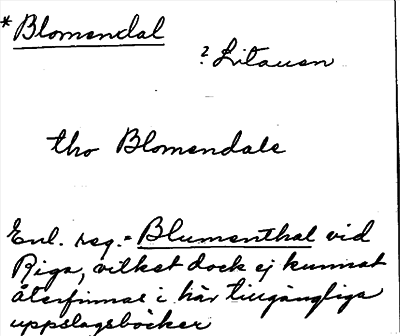 *Blomendal
? Litauen
tho Blomendale
Enl. reg. = Blumenthal vid
Riga, vilket dock ej kunnat
återfinnas i här tillgängliga
uppslagsböcker